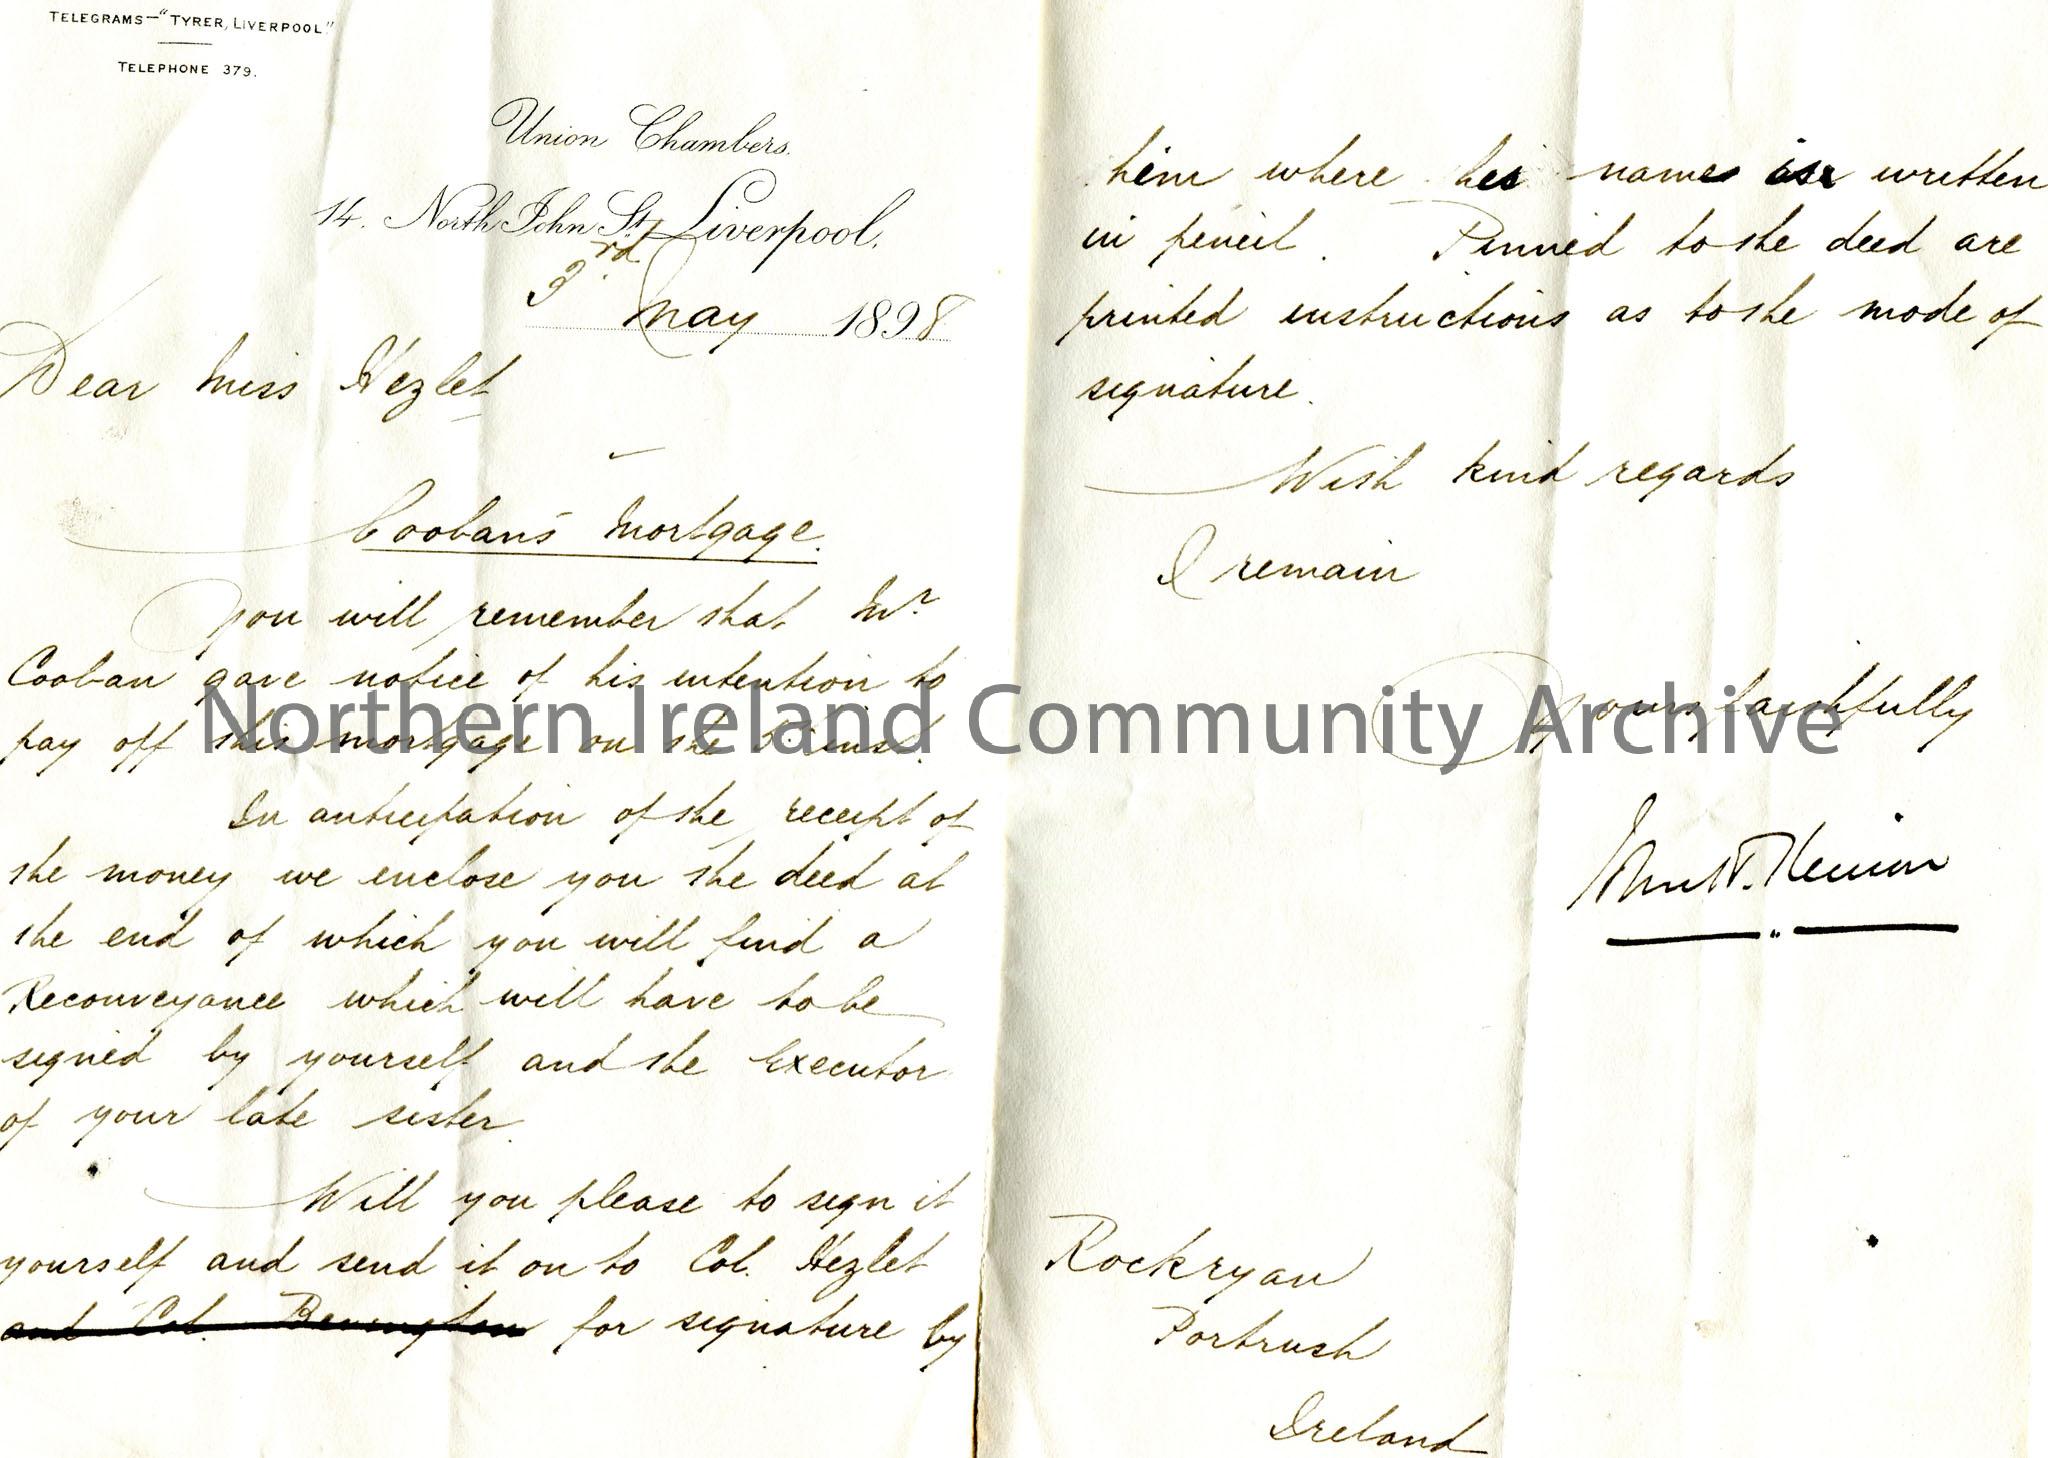 TELEGRAMS—"TYRER, LIVERPOOL"
TELEPHONE 379.
Union Chambers.
14. North John St. Liverpool.
3rd May 1898
Dear Miss Hezlet
Cooban's Mortgage.
You will remember that Mr.
Cooban gave notice of his intention to
pay off this mortgage on the inst.
In anticipation of the receipt of
the money we enclose you the deed at
the end of which you will find a
Reconveyance which will have to be
signed by yourself and the Executor
of your late sister.
Will you please to sign it
yourself and send it on to Col. Hezlet
and Col. for signature by
him where his name is written
in pencil. Pinned to the deed are
printed instructions as to the mode of
signature.
With kind regards
I remain
Yours faithfully
Rockryan
Portrush
Ireland
Northern Ireland Community Archive